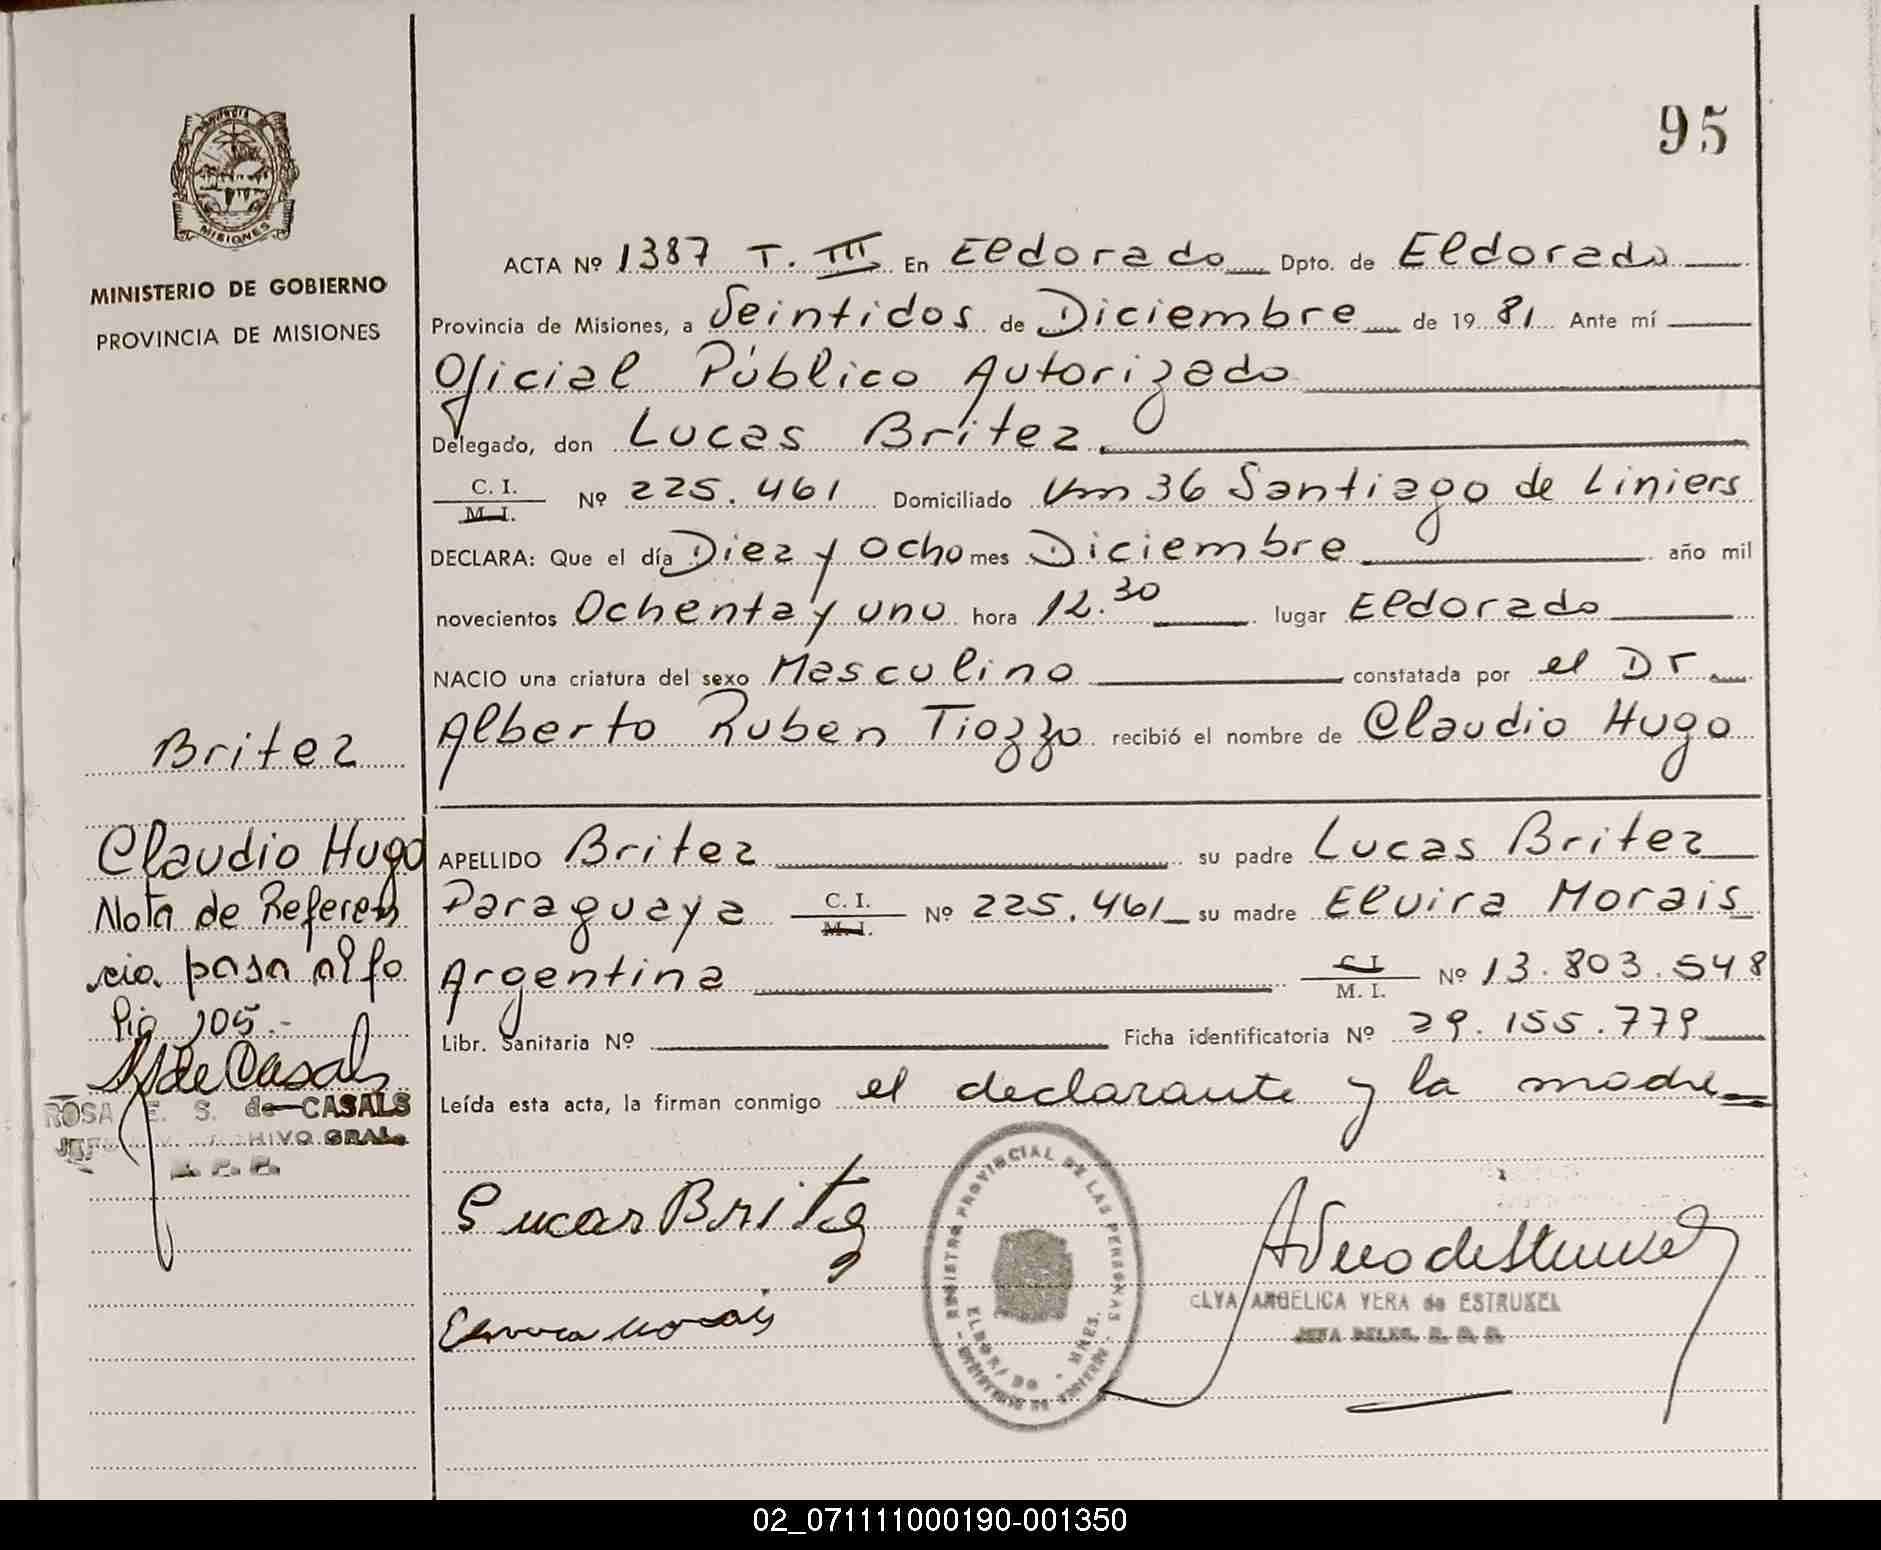 95
MISIONES
MINISTERIO DE GOBIERNO
PROVINCIA DE MISIONES
ACTA Nº 1387 T. III En Eldorado Dpto. de Eldorado
Provincia de Misiones, a Veintidos de Diciembre de 19 81 Ante mí
Oficial Público Autorizado
Delegado, don Lucas Britez
C. I. M. I. Nº 225.461 Domiciliado Km 36 Santiago de Liniers
DECLARA: Que el día Diez y Ocho mes Diciembre año mil
novecientos Ochenta y uno hora 12.30 lugar Eldorado
NACIO una criatura del sexo Masculino constatada por el Dr
Alberto Ruben Tiozzo recibió el nombre de Claudio Hugo
Britez
Claudio Hugo
Nota de Referen
cia pasa al fo
lio 105.-
ROSA E. S. de CASALS
ARCHIVO GRAL.
APELLIDO Britez su padre Lucas Britez
Paraguaya C. I. M. I. Nº 225.461 su madre Elvira Morais
Argentina C I M. I. Nº 13.803.548
Libr. Sanitaria Nº Ficha identificatoria Nº 29.155.779
Leída esta acta, la firman conmigo el declarante y la madre
Lucas Britez
REGISTRO PROVINCIAL DE LAS PERSONAS
ELDORADO - MNES.
MINISTERIO DE GOBIERNO
Elvira Morais
ELVA ANGELICA VERA de ESTRUXEL
JEFA DELEG. R. P. P.
02_071111000190-001350